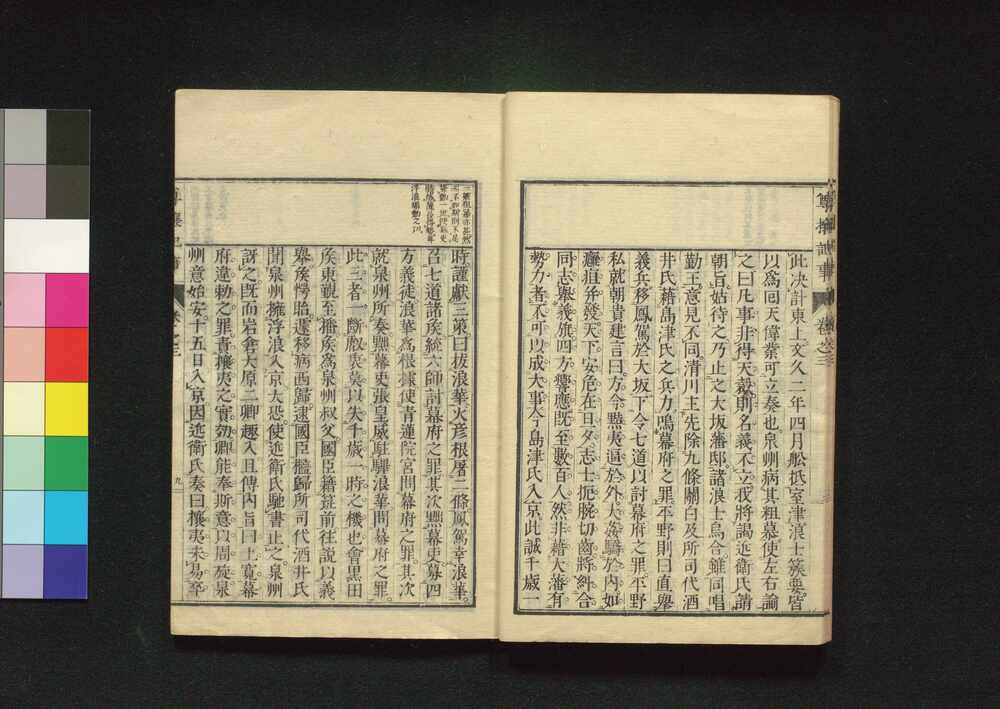 此決計東上文久二年四月舩抵室津浪士簇要皆
以爲回天偉業可立奏也泉州病其粗暴使左右諭
之曰凡事非得天裁則名義不立我將謁近衛氏請
朝旨姑待之乃止之大坂藩邸諸浪士烏合雖同唱
勤王意見不同清川主先除九條關白及所司代酒
井氏藉島津氏之兵力鳴幕府之罪平野則曰直舉
義兵移鳳駕於大坂下令七道以討幕府之罪平野
私就朝貴建言曰方今黠夷逼於外大姦驕於內如
癰疽并發天下安危在旦夕志士扼腕切齒將糾合
同志舉義旗四方響應既至數百人然非藉大藩有
勢力者不可以成大事今島津氏入京此誠千歲一
尊攘記事
卷之三
時謹獻三策曰拔浪華火彥根屠二條鳳駕幸浪華
召七道諸侯統六師討幕府之罪其次黜幕吏募四
方義徒浪華爲根據使青蓮院宮問幕府之罪其次
就泉州所奏黜幕吏張皇威駐驆浪華問幕府之罪
此三者一斷叡衷莫以失千歲一時之機也會黑田
侯東覲至播侯爲泉州叔父國臣籍註前往說以義
舉侯愕眙遽移病西歸逮國臣檻歸所司代酒井氏
聞泉州擁浮浪入京大恐使近衛氏馳書止之泉州
訝之既而岩倉大原二卿趣入且傳內旨曰上寬幕
府違勅之罪責攘夷之實勿卿能奉斯意以周旋泉
州意始安十五日入京因近衛氏奏曰攘夷未易卒
九